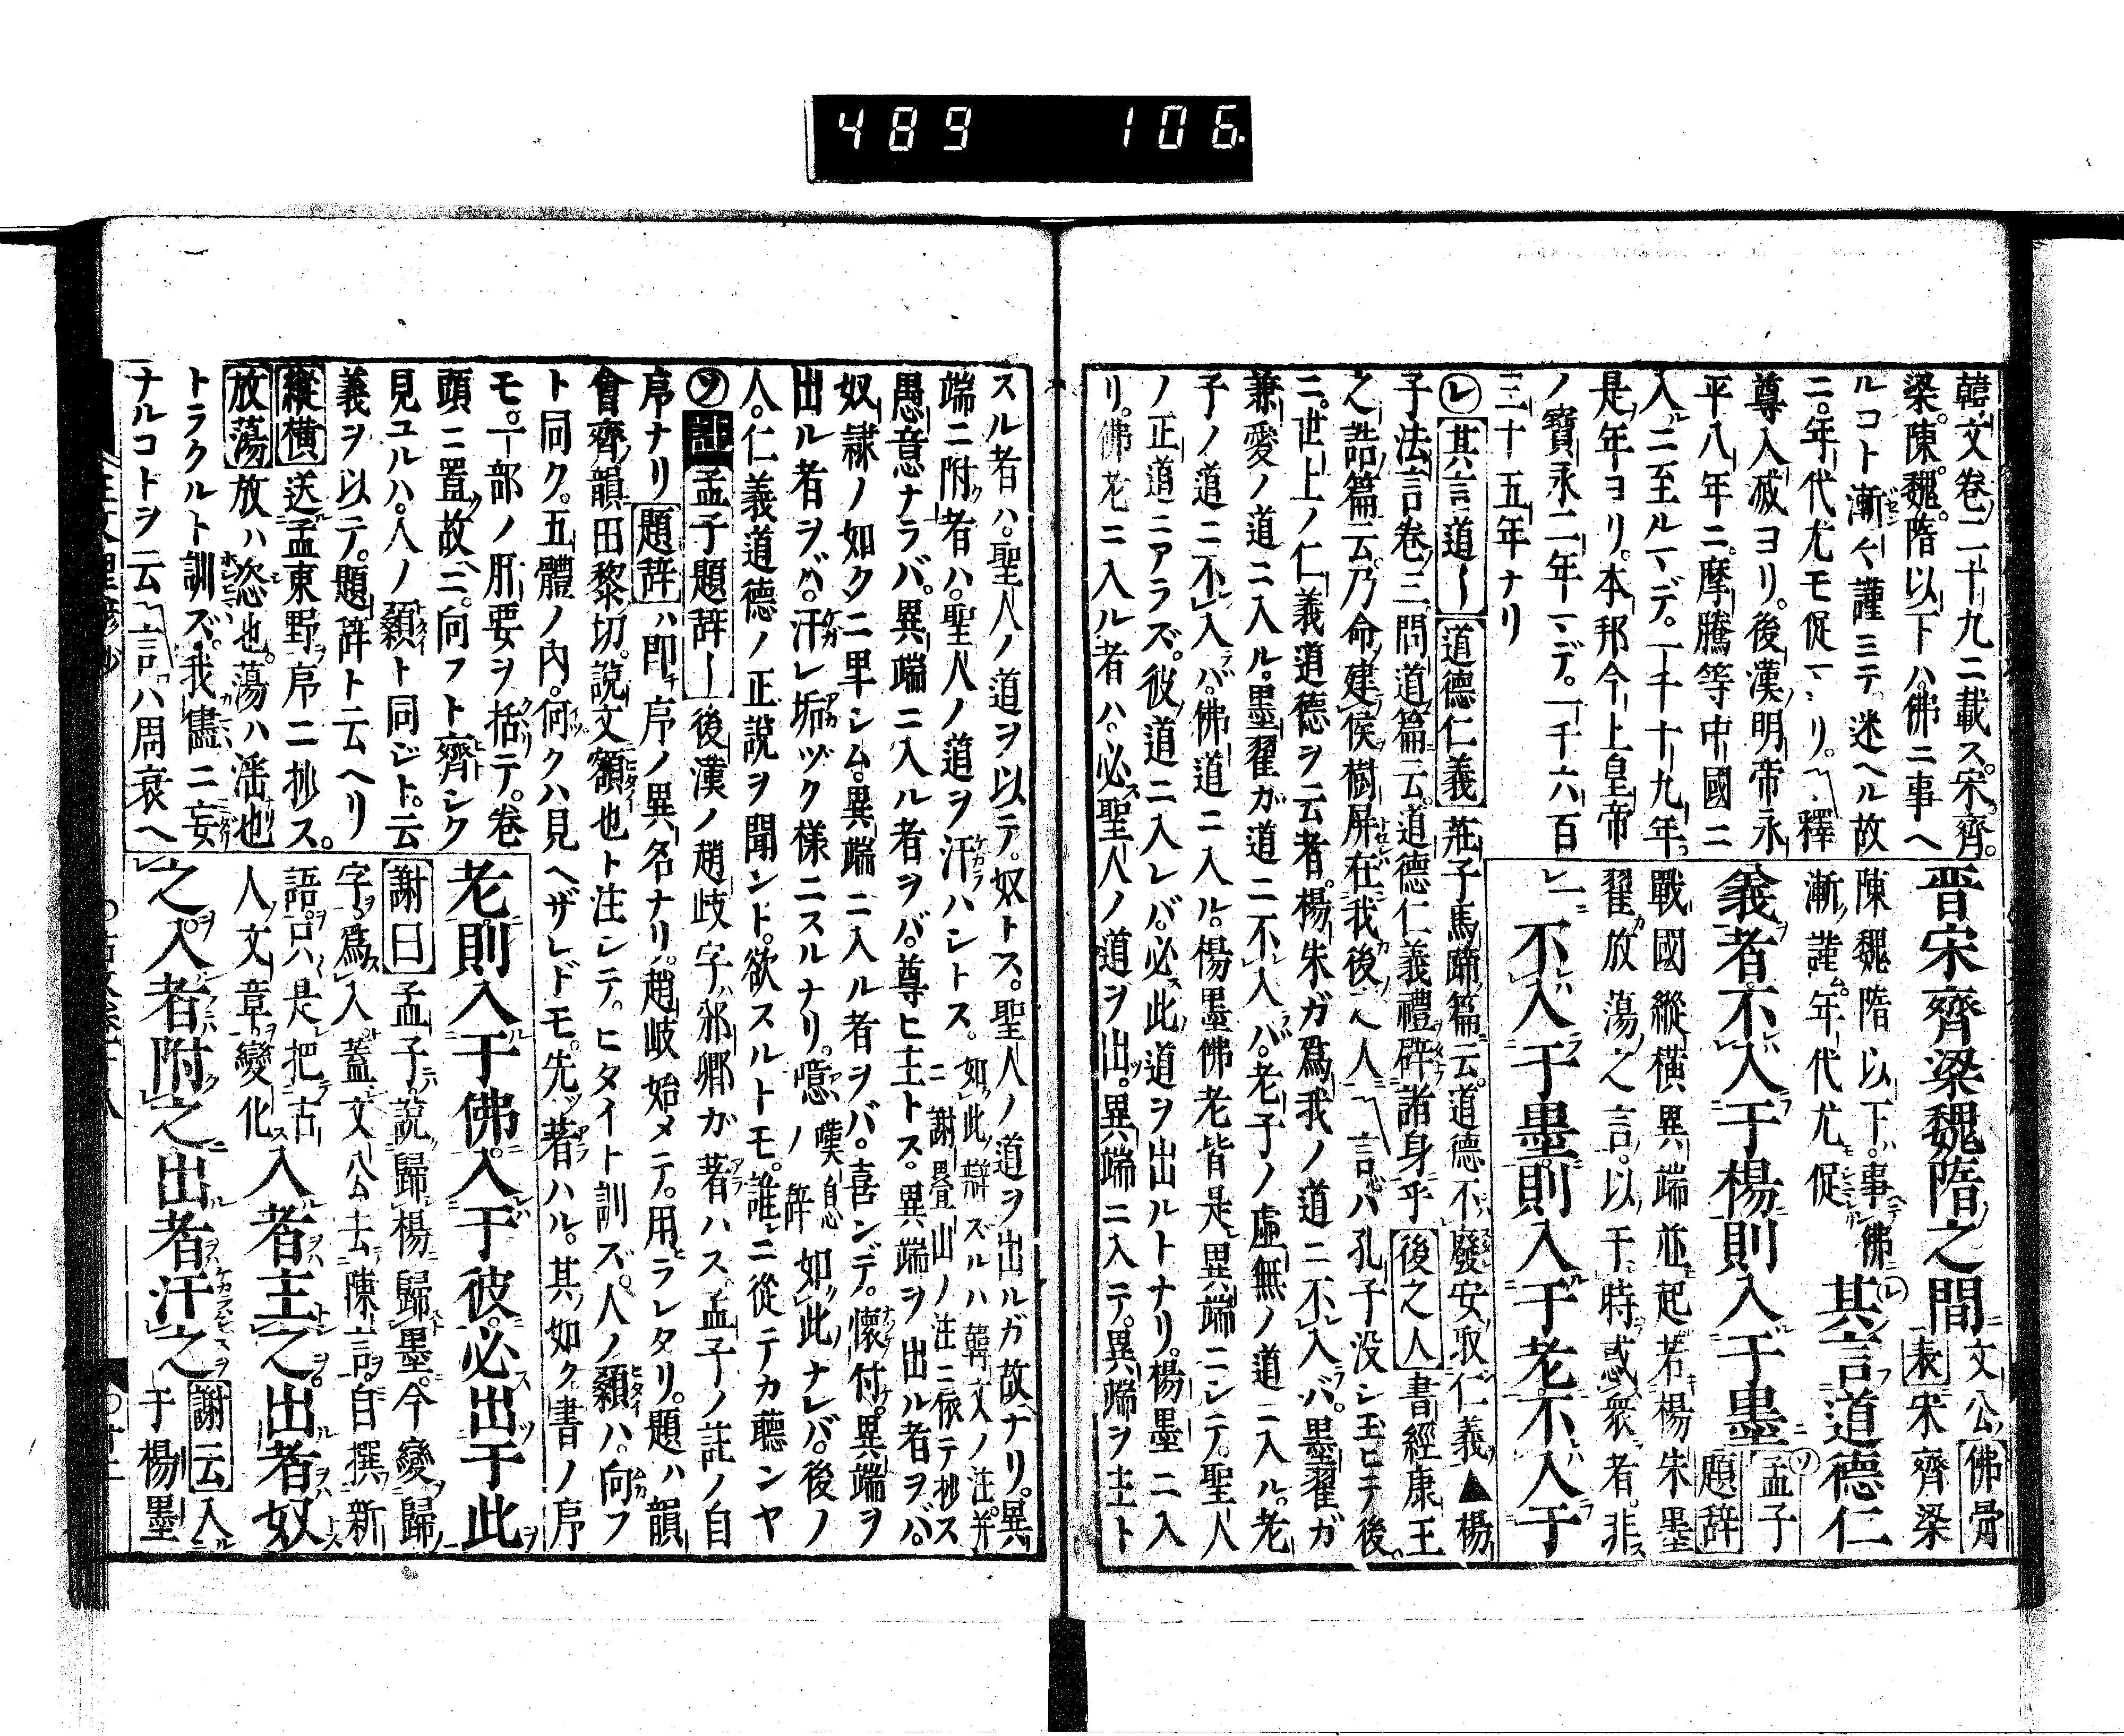 489 106
韓文卷二十九ニ載ス。宋。齊。
梁。陳。魏。隋以下ハ。佛ニ事ヘ
ルコト漸ク謹ミテ。迷ヘル故
ニ。年代尤モ促マリ。釋
尊入滅ヨリ。後漢明帝永
平八年ニ。摩騰等中國ニ
入ルニ至ルマデ。一千十九年。
是年ヨリ。本邦今上皇帝
ノ寶永二年マデ。一千六百
三十五年ナリ
晋宋齊梁魏隋之間
文公佛骨
表宋齊梁
陳魏隋以下。事佛
漸謹。年代尤促
其言道德仁
義者。不入于楊則入于墨
孟子
題辞
戰國縱横異端並起若楊朱墨
翟放蕩之言。以干時惑衆者。非
一
不入于墨。則入于老。不入于
レ其言道ー道德仁義莊子馬蹄篇云。道德不廢安取仁義▲楊
子法言卷三問道篇云。道德仁義禮辟諸身乎後之人書經康王
之誥篇云。乃命建侯樹屏在我後之人言ハ孔子没シ玉ヒテ後。
ニ。世上ノ仁義道德ヲ云者。楊朱ガ爲我ノ道ニ不入バ。墨翟ガ
兼愛ノ道ニ入ル。墨翟ガ道ニ不入バ。老子ノ虚無ノ道ニ入ル。老
子ノ道ニ不入バ。佛道ニ入ル。楊墨佛老皆是異端ニシテ。聖人
ノ正道ニアラズ。彼道ニ入レバ。必此道ヲ出ルトナリ。楊墨ニ入
リ。佛老ニ入ル者ハ。必聖人ノ道ヲ出。異端ニ入テ。異端ヲ主ト
スル者ハ。聖人ノ道ヲ以テ。奴トス。聖人ノ道ヲ出ルガ故ナリ。異
端ニ附者ハ。聖人ノ道ヲ汗ハントス。如此辯ズルハ韓文ノ注并
ニ謝疊山ノ注ニ依テ抄ス
愚意ナラバ。異端ニ入ル者ヲバ。尊ヒ主トス。異端ヲ出ル者ヲバ。
奴隷ノ如クニ卑シム。異端ニ入ル者ヲバ。喜ンデ。懷付。異端ヲ
出ル者ヲバ。汗レ垢ヅク様ニスルナリ。噫嘆息
ノ辞如此ナレバ。後ノ
人。仁義道德ノ正説ヲ聞ント。欲スルトモ。誰ニ從テカ聽ンヤ
ソ註孟子題辞ー後漢ノ趙歧字ハ邠卿ガ著ハス。孟子ノ註ノ自
序ナリ題辞ハ即序ノ異名ナリ。趙岐始メテ。用ラレタリ。題ハ韻
會齊韻田黎切。説文額也ト注シテ。ヒタイト訓ズ。人ノ額ハ。向フ
ト同ク。五體ノ内。何クハ見ヘザレドモ。先著ハル。其如ク書ノ序
モ。一部ノ肝要ヲ括テ。巻
頭ニ置故ニ。向フト齊シク
見ユルハ。人ノ額ト同ジト。云
義ヲ以テ。題辞ト云ヘリ
縱横送孟東野序ニ抄ス。
放蕩放ハ恣也。蕩ハ滛也
トラクルト訓ズ。我儘ニ妄
ナルコトヲ云言ハ周衰ヘ
老。則入于佛。入于彼。必出于此
謝曰孟子説歸楊歸墨。今變歸
字爲入。蓋文公去陳言。自撰新
語。只是把古
人文章變化
入者主之。出者奴
之。入者附之。出者汗之
謝云入
于楊墨